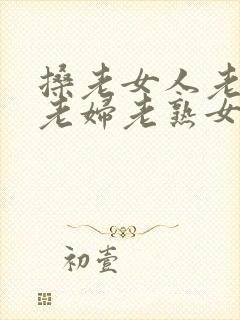 搡老女人老
老妇老熟女
初壹